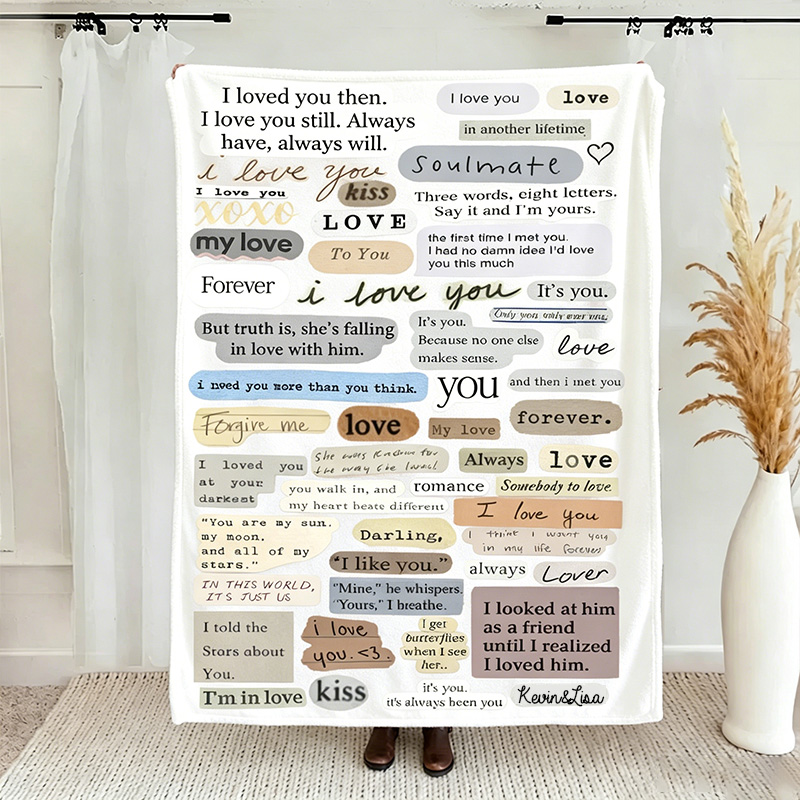 I loved you then.
I love you still. Always
have, always will.
I love you
love
in another lifetime
i love you
soulmate
I love you
kiss
Three words, eight letters.
Say it and I'm yours.
xoxo
LOVE
my love
To You
the first time I met you.
I had no damn idea I'd love
you this much
Forever
i love you
It's you.
Only you
But truth is, she's falling
in love with him.
It's you.
Because no one else
makes sense.
love
i need you more than you think.
you
and then i met you
Forgive me
love
My love
forever.
I loved you
at your
darkest
She was
the way she
Always
love
you walk in, and
my heart beats different
romance
Somebody to love.
I love you
"You are my sun,
my moon,
and all of my
stars."
Darling,
I think I want you
in my life forever
"I like you."
always
Lover
IN THIS WORLD,
IT'S JUST US
"Mine," he whispers.
"Yours," I breathe.
I told the
Stars about
You.
i love
you. <3.
I get
butterflies
when I see
her..
I looked at him
as a friend
until I realized
I loved him.
I'm in love
kiss
it's you.
it's always been you
Kevin&Lisa